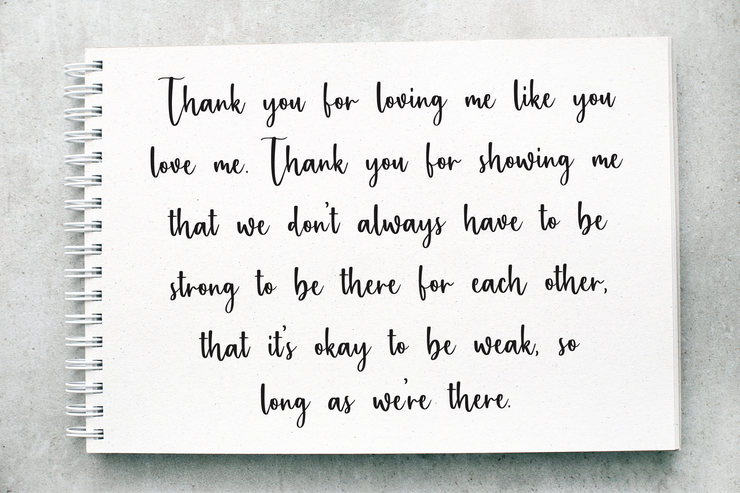 Thank you for loving me like you
love me. Thank you for showing me
that we don't always have to be
strong to be there for each other,
that it's okay to be weak, so
long as we're there.